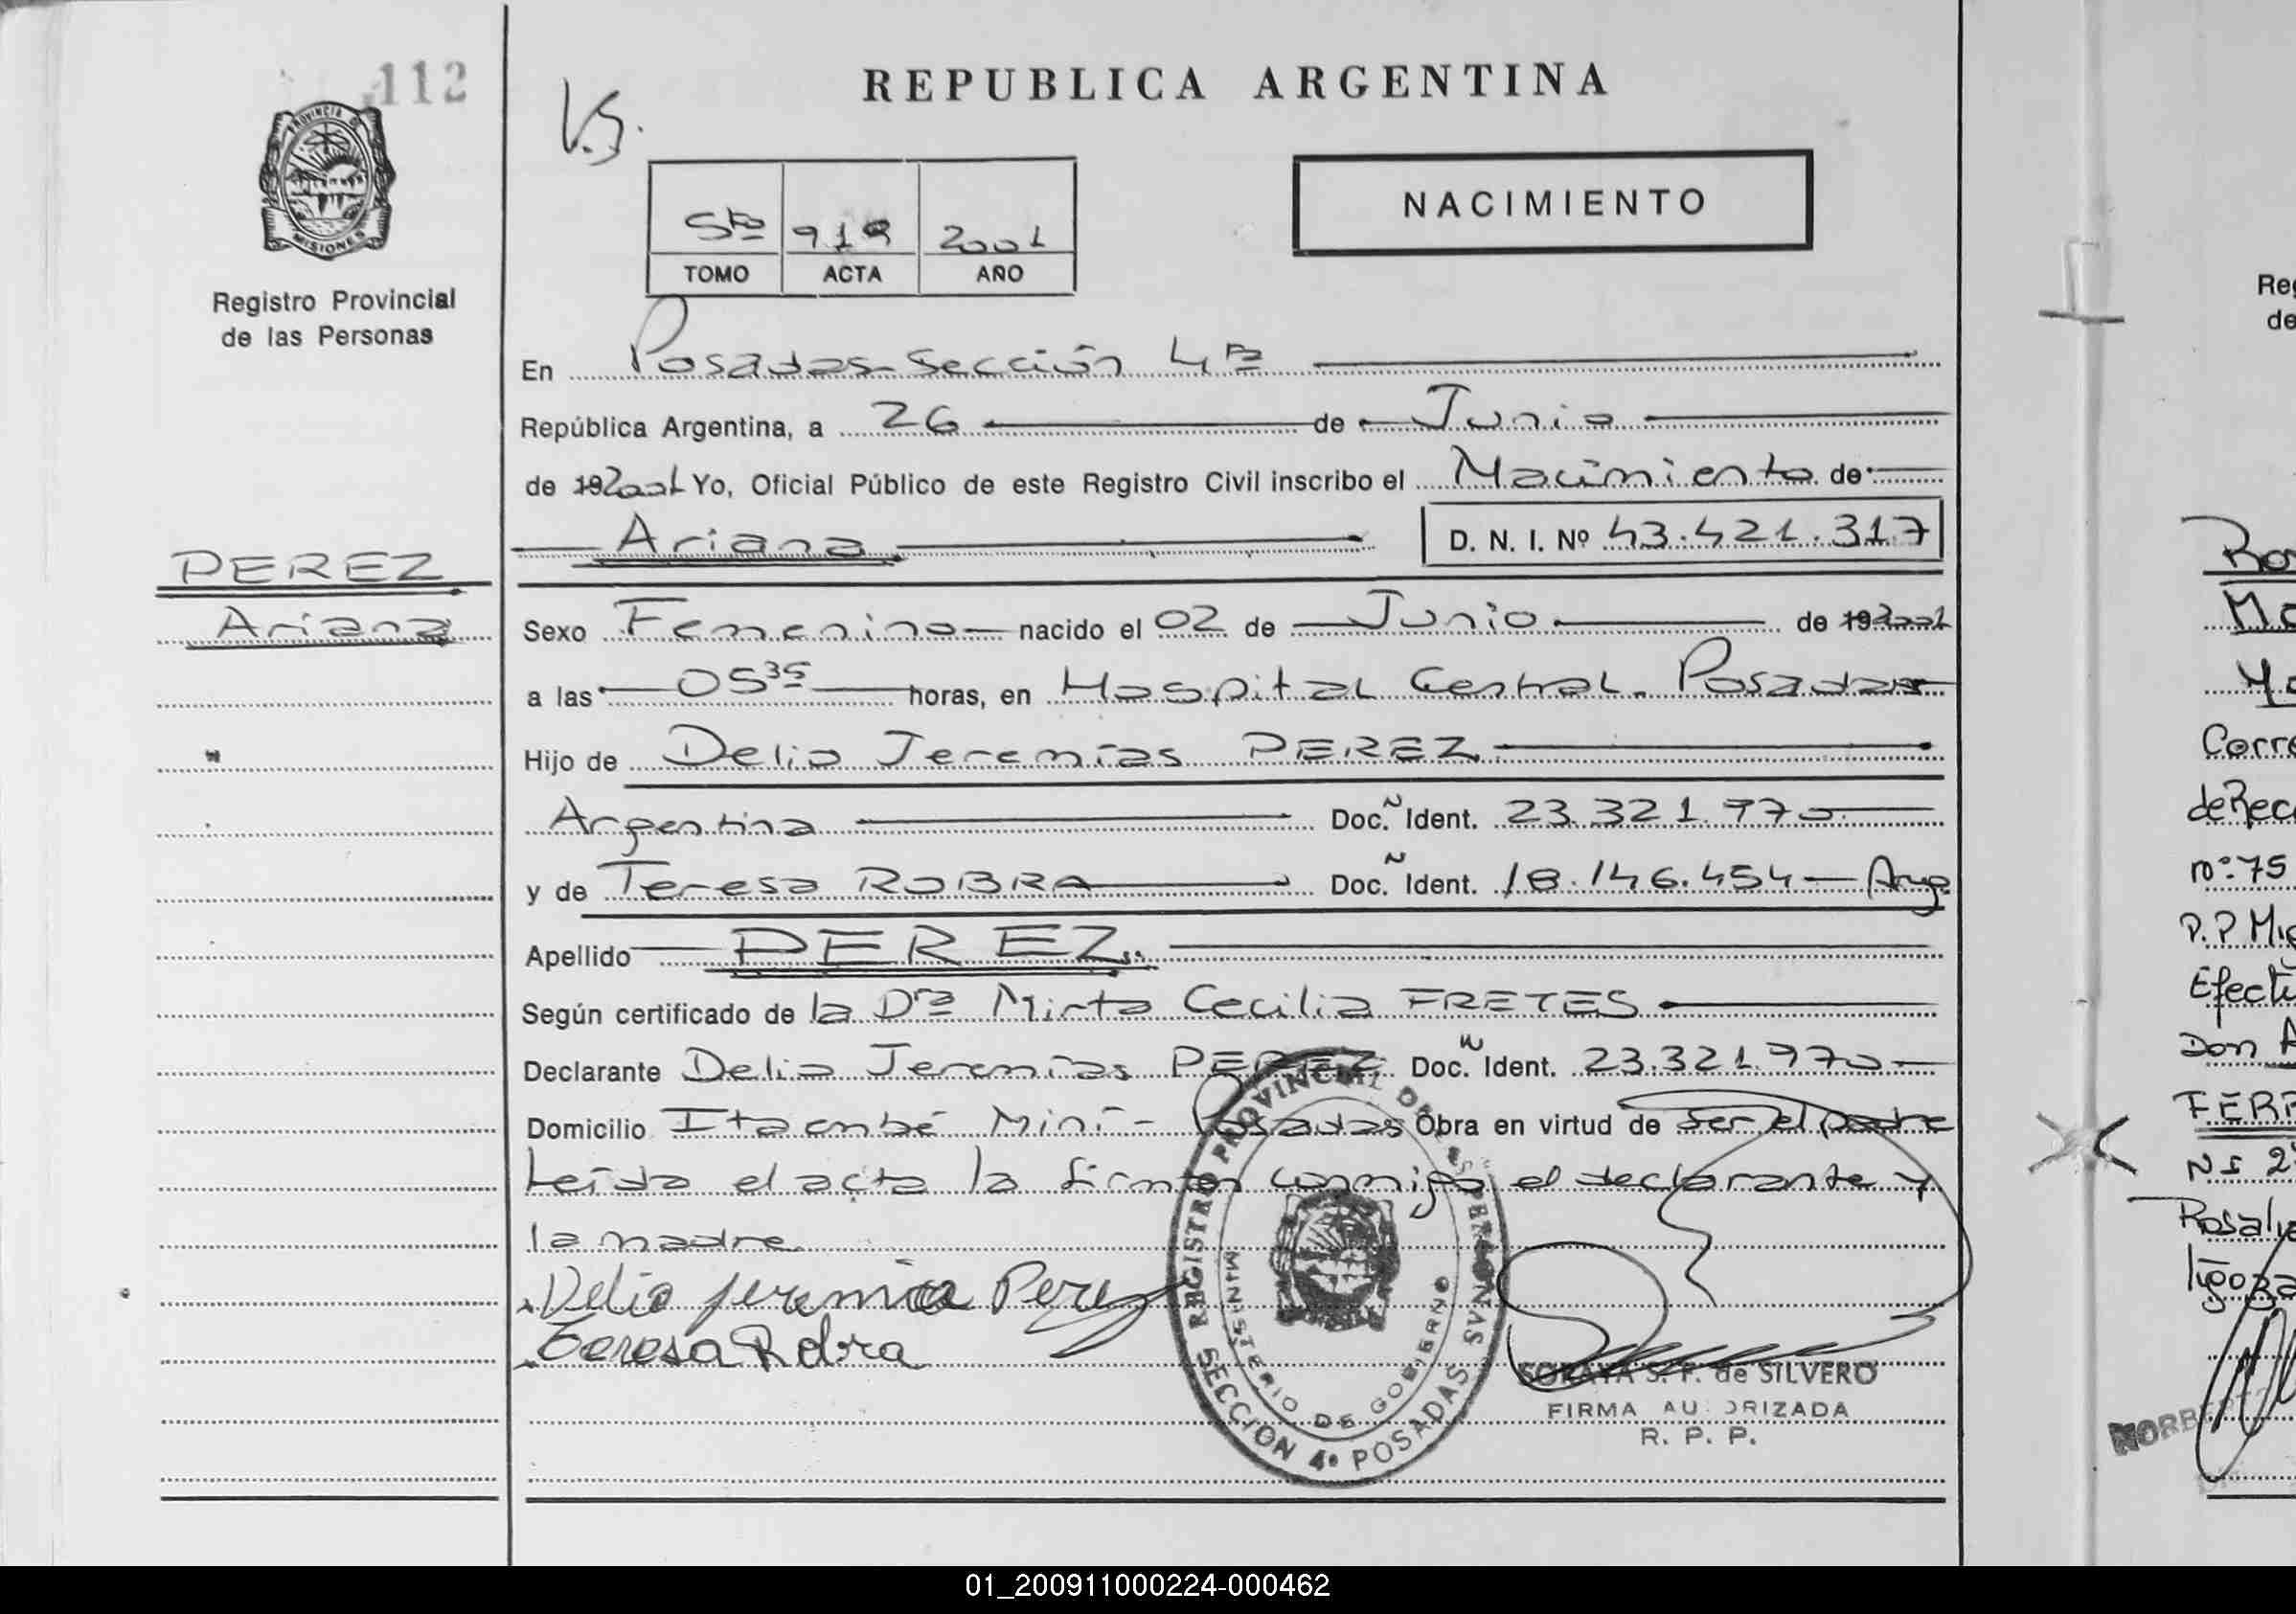 112
PROVINCIA DE
MISIONES
Registro Provincial
de las Personas
PEREZ
Ariana
REPUBLICA ARGENTINA
NACIMIENTO
5to 919 2001
TOMO ACTA AÑO
En Posadas-Sección 4ta
República Argentina, a 26 de Junio
de 192001 Yo, Oficial Público de este Registro Civil inscribo el Nacimiento de
Ariana D. N. I. Nº 43.421.317
Sexo Femenino nacido el 02 de Junio de 192001
a las 05 35 horas, en Hospital Central. Posadas
Hijo de Delio Jeremías PEREZ
Argentina Doc. Ident. 23.321.970
y de Teresa ROBRA Doc. Ident. 18.146.454 - Arg.
Apellido PEREZ
Según certificado de la Dra Mirta Cecilia FRETES
Declarante Delio Jeremías PEREZ Doc. Ident. 23.321.970
Domicilio Itaembé Miní - Posadas Obra en virtud de ser el padre
Leída el acta la firman conmigo el declarante y
la madre
Delio jeremias Perez
Teresa Robra
REGISTRO PROVINCIAL DE LAS PERSONAS
MINISTERIO DE GOBIERNO
SECCION 4ª POSADAS
SORAYA S. F. de SILVERO
FIRMA AU ORIZADA
R. P. P.
Reg
de
Corre
de Rec
nº: 75
Efecti
Don A
Rosal
01_200911000224-000462